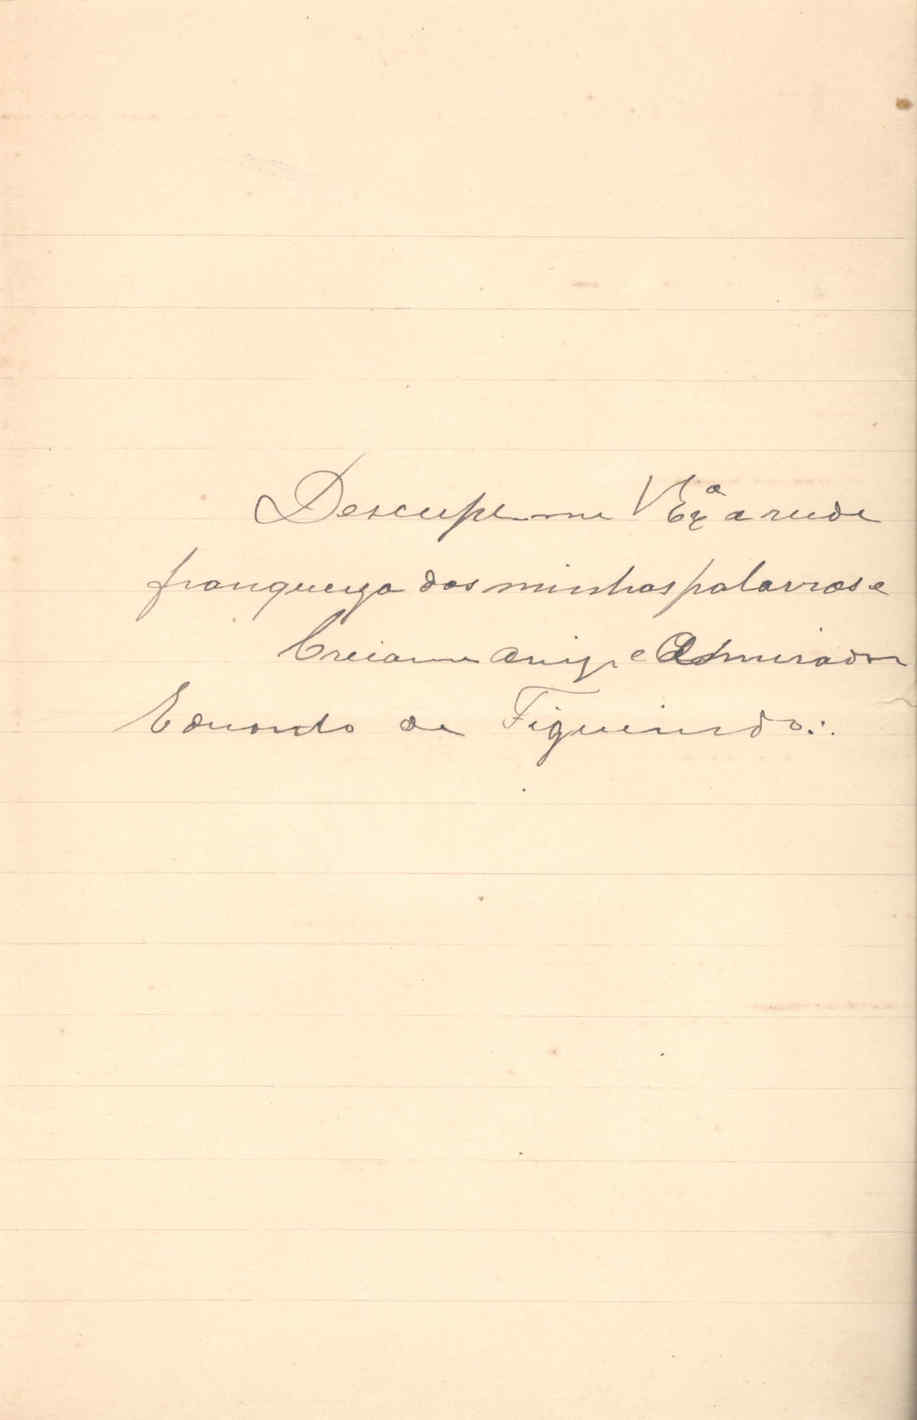 Desculpe-me V Exª a rude
franqueza das minhas palavras e
Creia-me amigo e Admirador
Eduardo de Figueiredo.:.